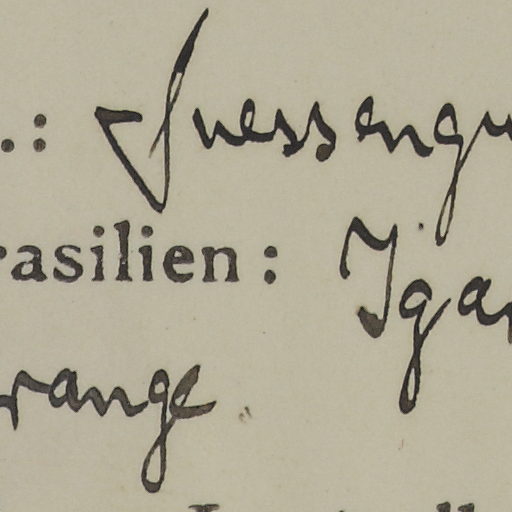 .: Suessengu
rasilien: Igar
range